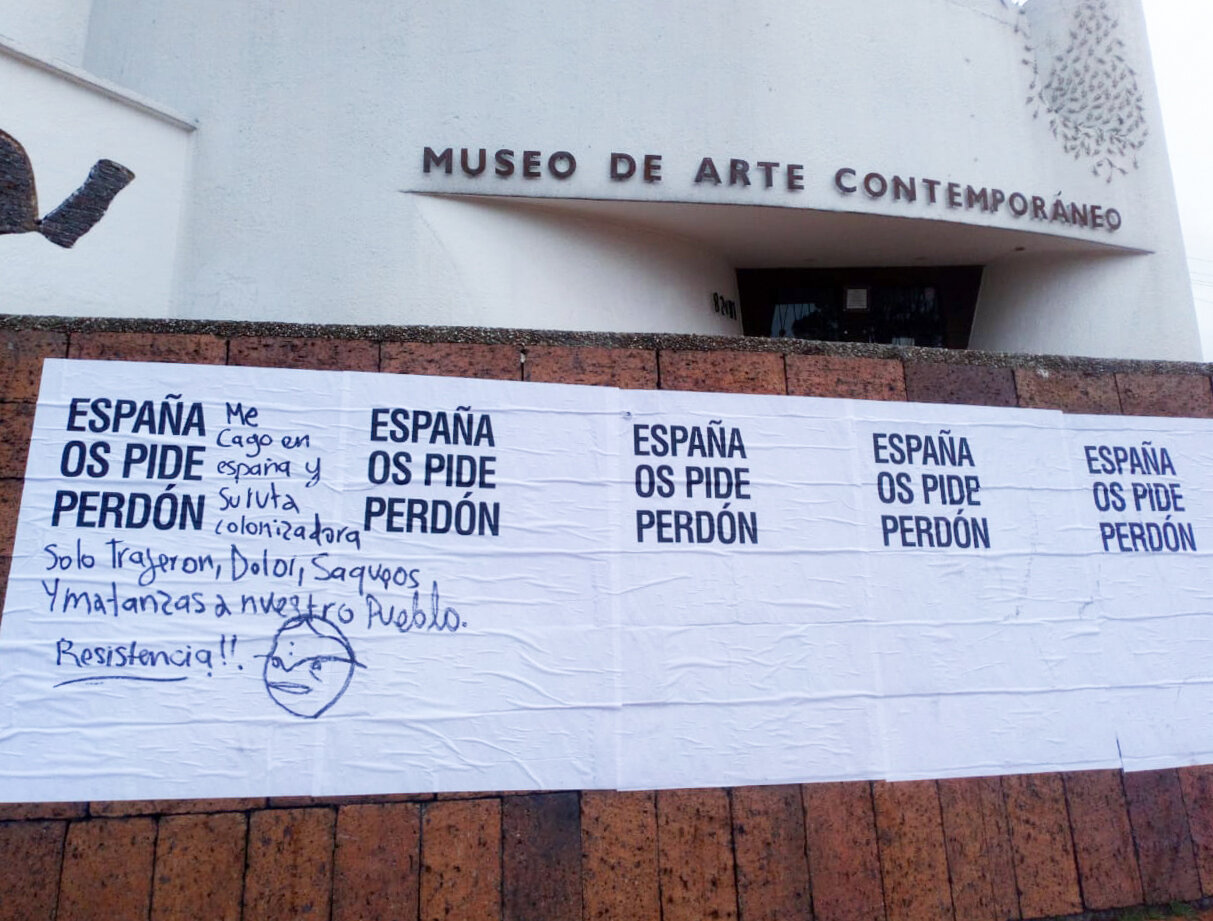 MUSEO DE ARTE CONTEMPORÁNEO
ESPAÑA
OS PIDE
PERDÓN
Me
Cago en
españa y
su ruta
colonizadora
Solo Trajeron, Dolor, Saqueos
Y matanzas a nuestro Pueblo.
Resistencia!!.
ESPAÑA
OS PIDE
PERDÓN
ESPAÑA
OS PIDE
PERDÓN
ESPAÑA
OS PIDE
PERDÓN
ESPAÑA
OS PIDE
PERDÓN